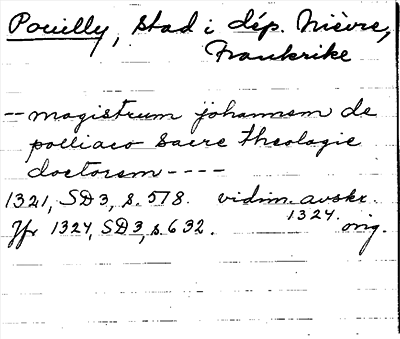 Pouilly, stad i dép. Nièvre,
Frankrike
-- magistrum johannem de
polliaco sacre theologie
doctorem ----
1321, SD3, s. 578. vidim. avskr.
1324.
Jfr 1324, SD3, s. 632. orig.